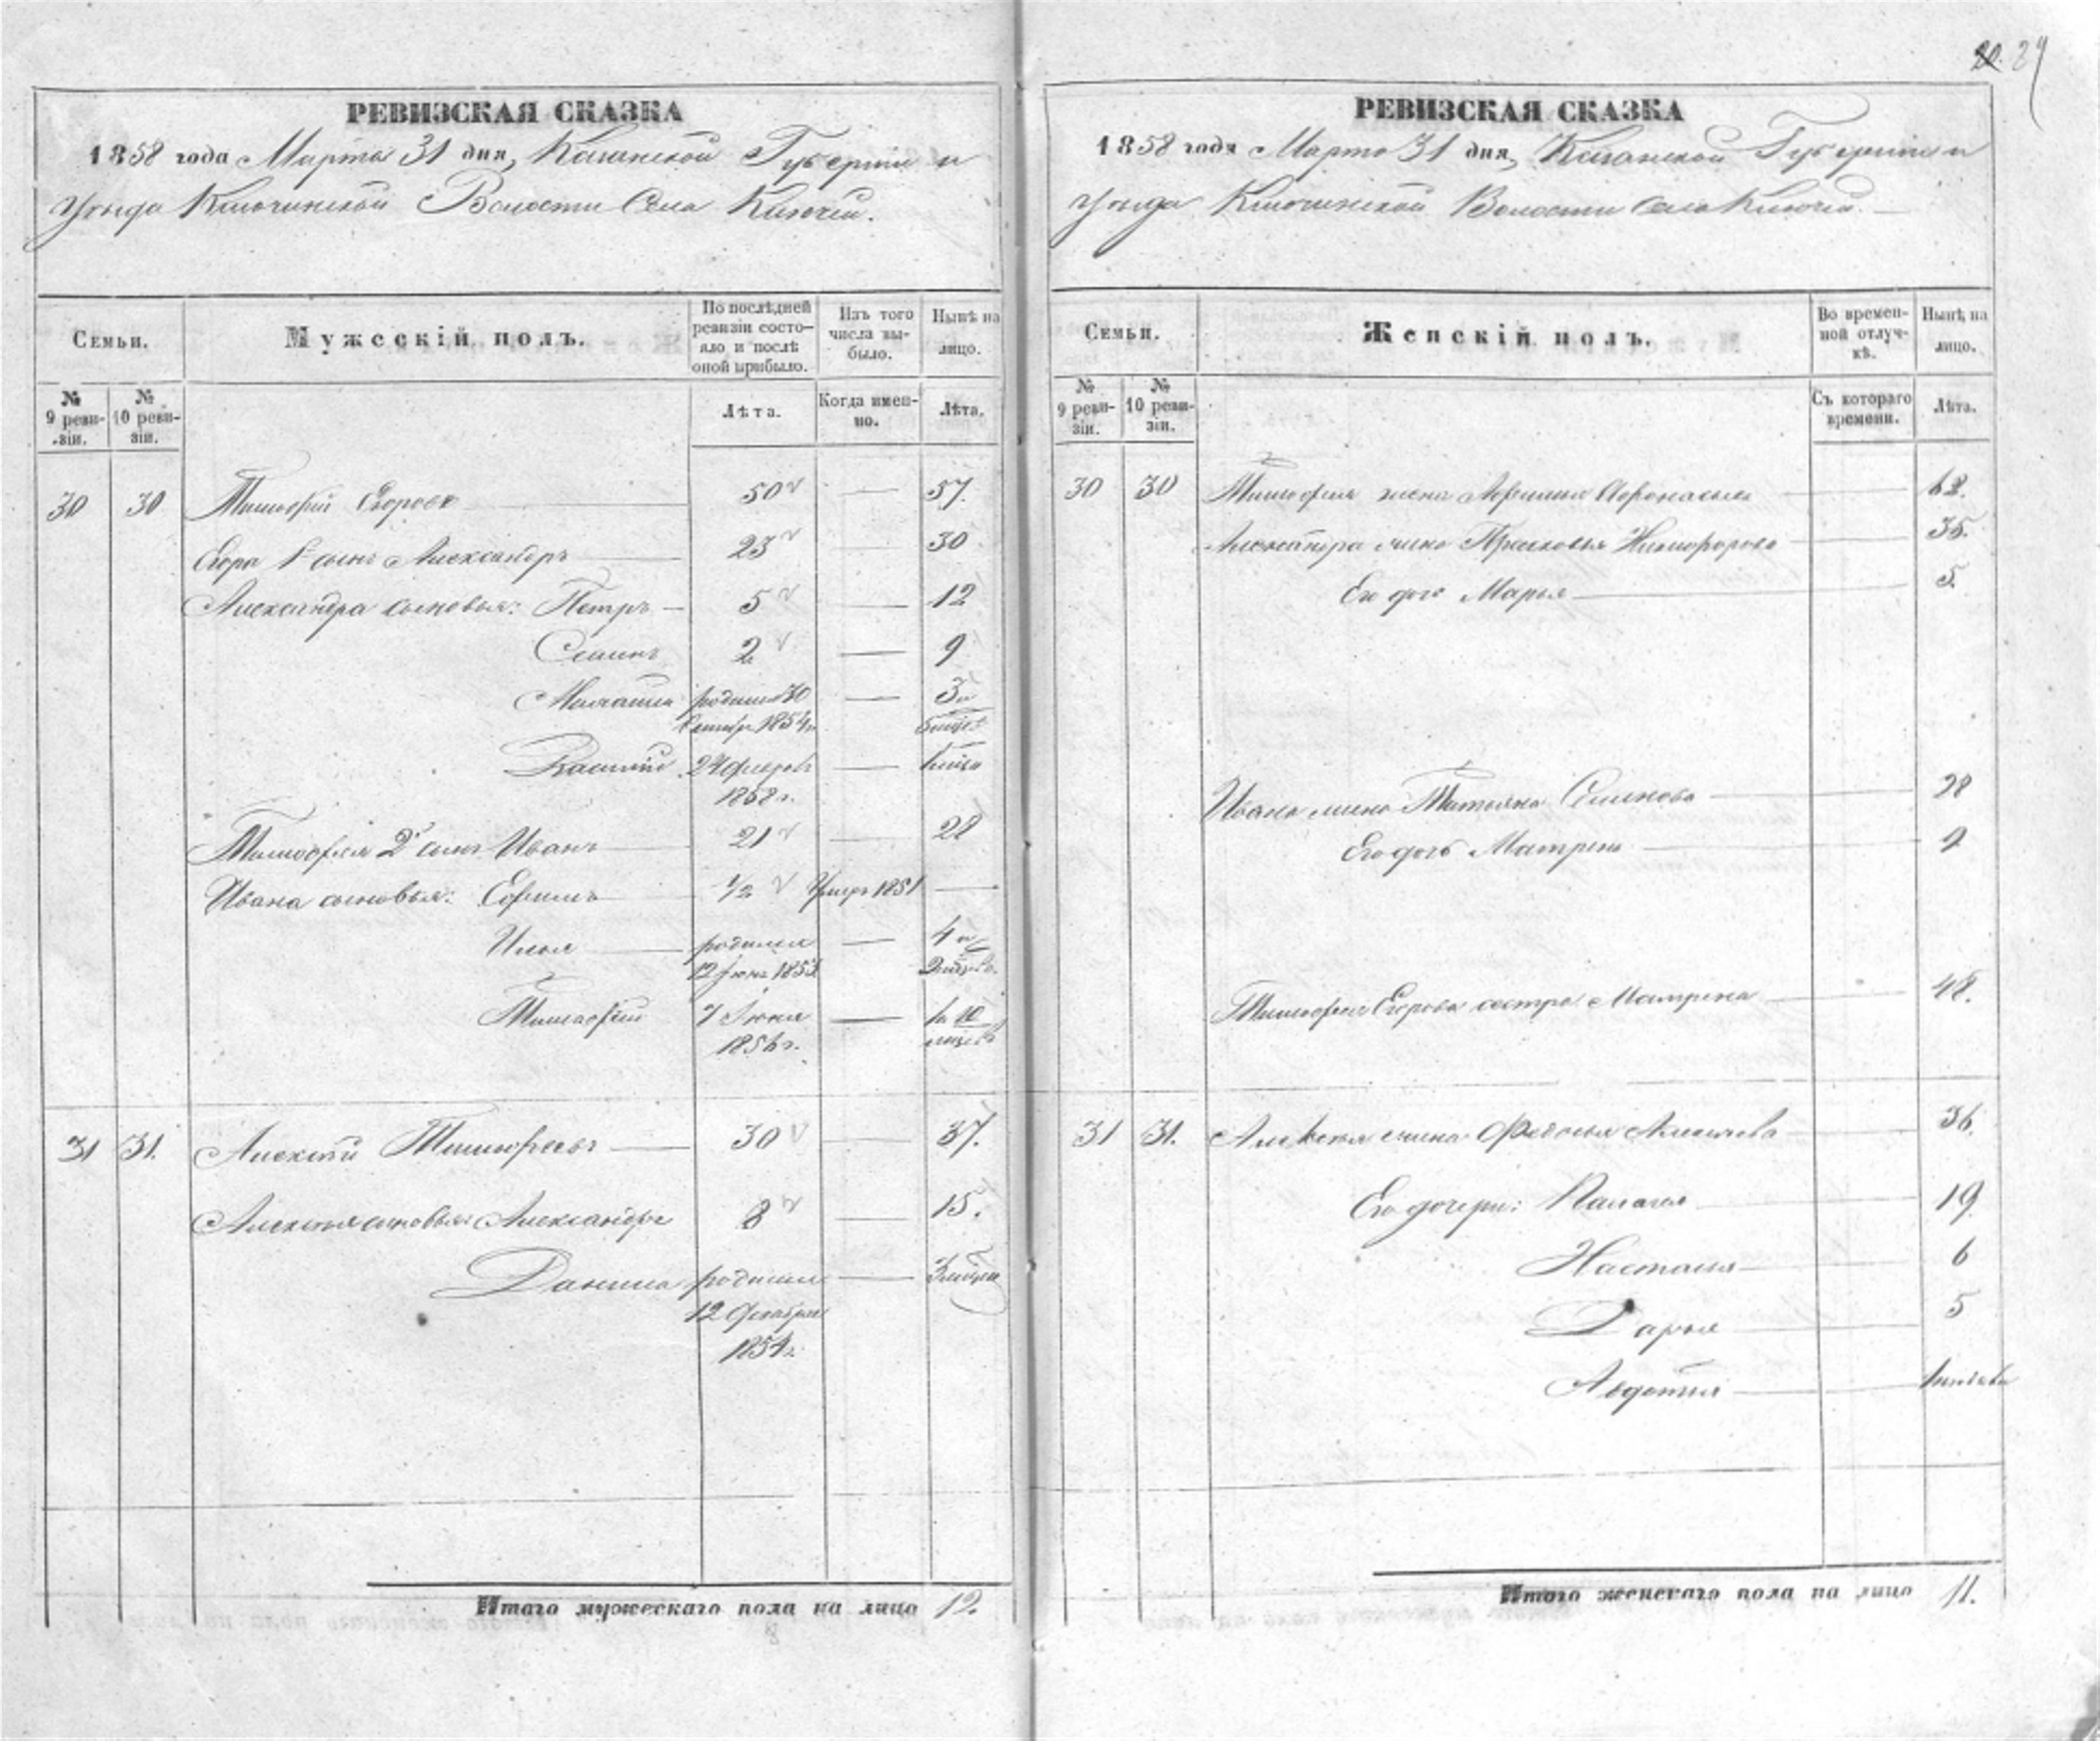 20. 29
РЕВИЗСКАЯ СКАЗКА
1858 года Марта 31 дня, Казанской Губернии и
Уѣзда Ключинской Волости Села Ключей.
Семьи.
Мужескій полъ.
По послѣдней ревизіи состо-
яло и послѣ
оной прибыло.
Изъ того
числа вы-
было.
Нынѣ на
лицо.
№
9 реви-
зіи.
№
10 реви-
зіи.
Лѣта.
Когда имен-
но.
Лѣта.
30 30 Тимофей Егоровъ 50 — 57.
Егора 1й сынъ Александръ 23 30
Александра сыновья: Петръ 5 — 12
Семенъ 2 — 9
родился 30 — 3 и
1854 г.
Василій 24 февраля — 1 мѣсяц
1858 г.
Тимофея 2й сынъ Иванъ 21 — 28
Ивана сыновья: Ефимъ 1/2 Умеръ 1851 —
Илья родился — 4 и
12 Іюня 1853
Тимофей 7 Іюня — 1 и 10
1856 г. мѣсяцевъ
31 31. Алексѣй Тимофеевъ 30 — 37.
Алексѣя сыновья: Александръ 8 — 15.
Данила родился — 3 мѣсяца
12 декабря
1857 г.
Итаго мужескаго пола на лицо 12.
РЕВИЗСКАЯ СКАЗКА
1858 года Марта 31 дня, Казанской Губерніи и
Уѣзда Ключинской Волости Села Ключей.
Семьи.
Женскій полъ.
Во времен-
ной отлуч-
кѣ.
Нынѣ на
лицо.
№
9 реви-
зіи.
№
10 реви-
зіи.
Съ котораго
времени.
Лѣта.
30 30 Тимофея жена Афонасьева 62.
Александра жена Прасковья Никифорова 35.
Его дочь Марья 5
Ивана жена Татьяна Семенова 28
Его дочь Матрена 9
Тимофея Егорова сестра Матрена 48.
31 31. Алексѣя жена Федосья 36.
Его дочери: Палагея 19
Настасья 6
Дарья 5
Авдотья
Итаго женскаго пола на лицо 11.